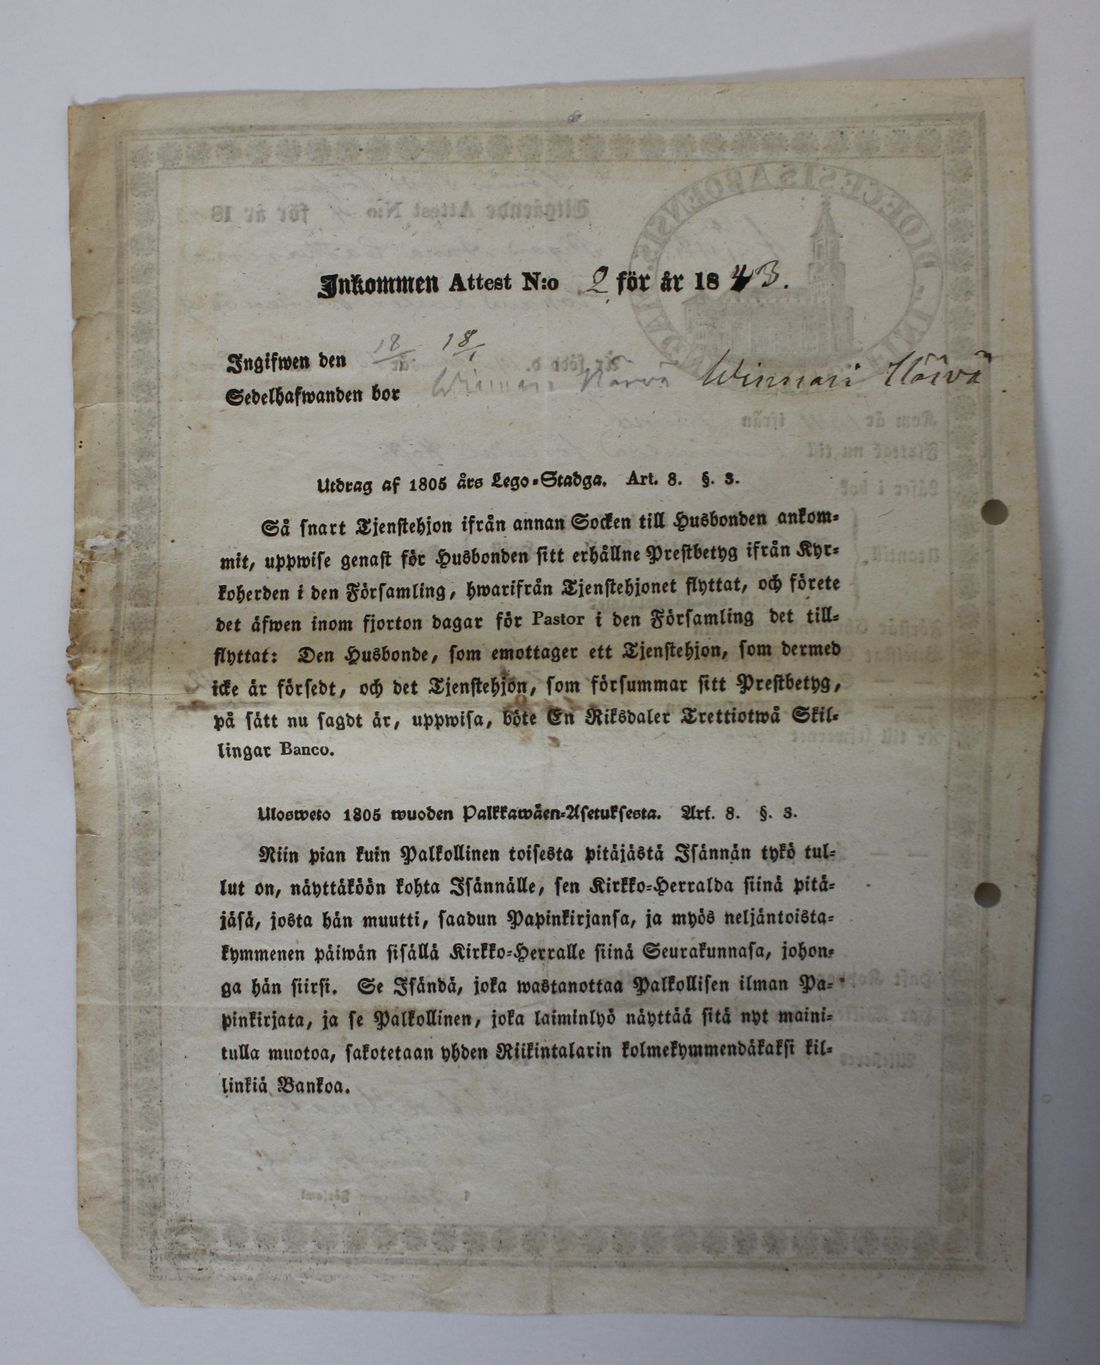 Inkommen Attest N:o 2 för år 1843.
Ingifwen den 18/1 18/1
Sedelhafwanden bor Winnari Winnari
Utdrag af 1805 års Lego-Stadga. Art. 8. §. 3.
Så snart Tjenstehjon ifrån annan Socken till Husbonden ankom-
mit, uppwise genast för Husbonden sitt erhållne Prestbetyg ifrån Kyr-
koherden i den Församling, hwarifrån Tjenstehjonet flyttat, och förete
det äfwen inom fjorton dagar för Pastor i den Församling det till-
flyttat: Den Husbonde, som emottager ett Tjenstehjon, som dermed
icke är försedt, och det Tjenstehjon, som försummar sitt Prestbetyg,
på sätt nu sagdt är, uppwisa, böte En Riksdaler Trettiotwå Skil-
lingar Banco.
Ulosweto 1805 wuoden Palkkawäen-Asetuksesta. Art. 8. §. 3.
Niin pian kuin Palkollinen toisesta pitäjästä Isännän tykö tul-
lut on, näyttäköön kohta Isännälle, sen Kirkko-Herralda siinä pitä-
jäsä, josta hän muutti, saadun Papinkirjansa, ja myös neljäntoista-
kymmenen päiwän sisällä Kirkko-Herralle siinä Seurakunnasa, johon-
ga hän siirsi. Se Isändä, joka wastanottaa Palkollisen ilman Pa-
pinkirjata, ja se Palkollinen, joka laiminlyö näyttää sitä nyt maini-
tulla muotoa, sakotetaan yhden Riikintalarin kolmekymmendäkaksi kil-
linkiä Bankoa.